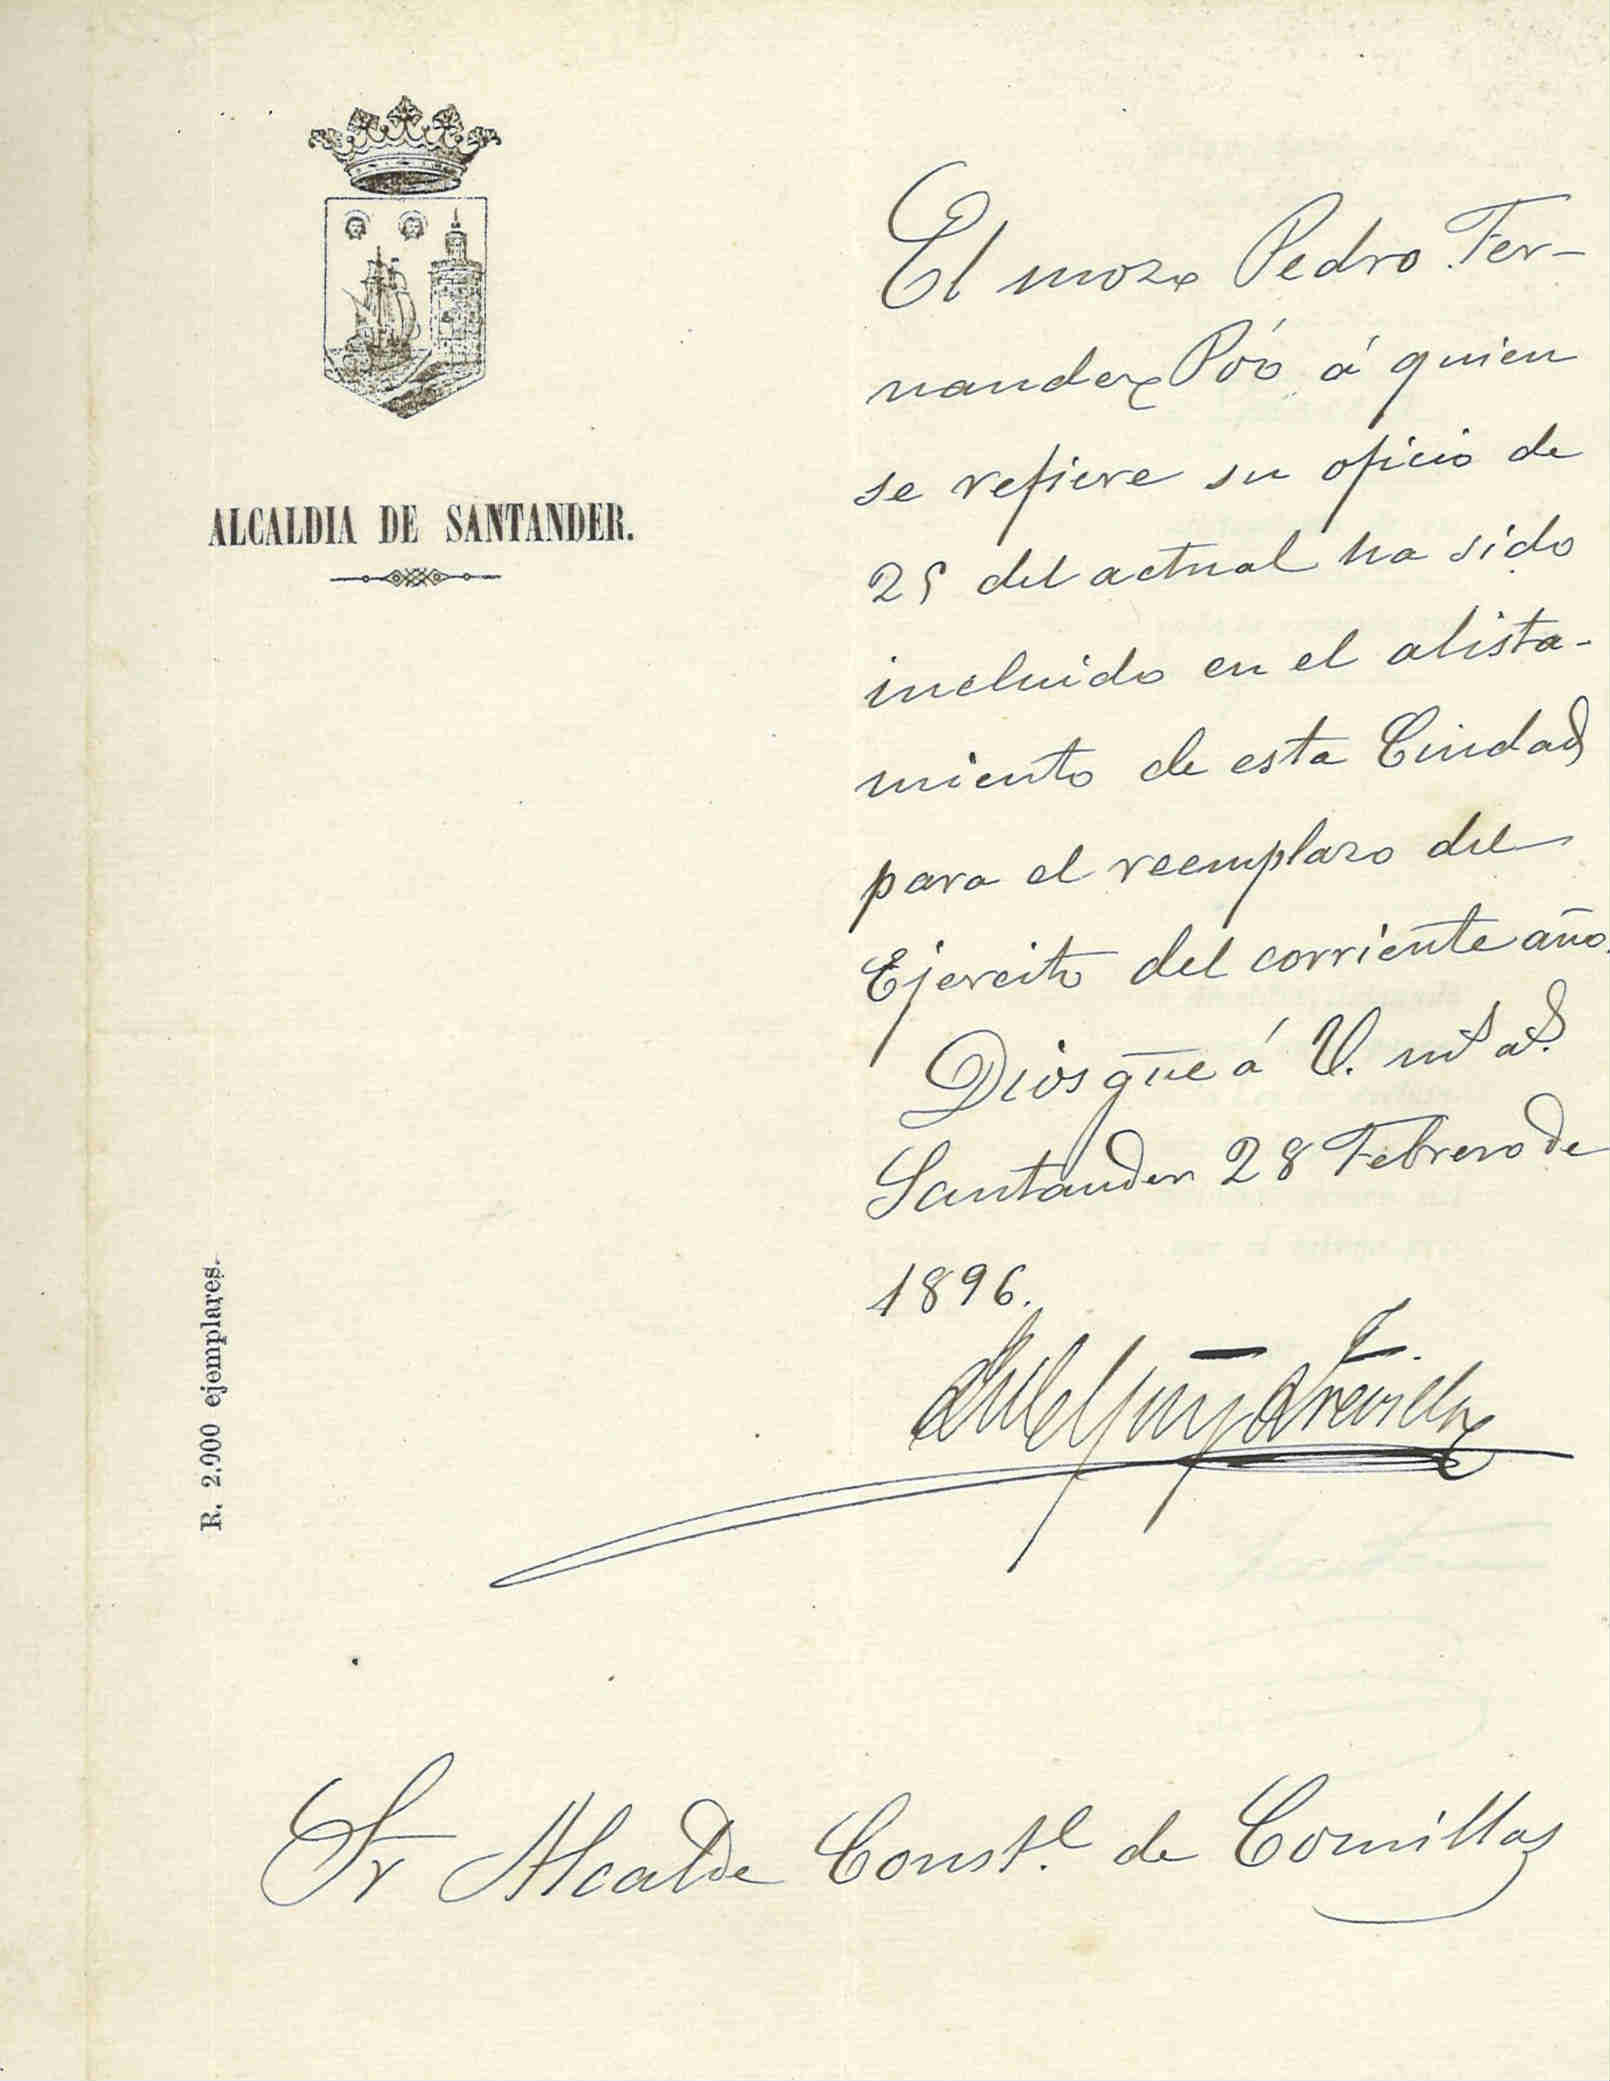 ALCALDIA DE SANTANDER.
El mozo Pedro Fer-
nandez Póo á quien
se refiere su oficio de
25 del actual ha sido
incluido en el alista-
miento de esta Ciudad
para el reemplazo del
Ejercito del corriente año.
Dios gūe á V. ms as.
Santander 28 Febrero de
1896.
R. 2.000 ejemplares.
Sr Alcalde Constl. de Comillas